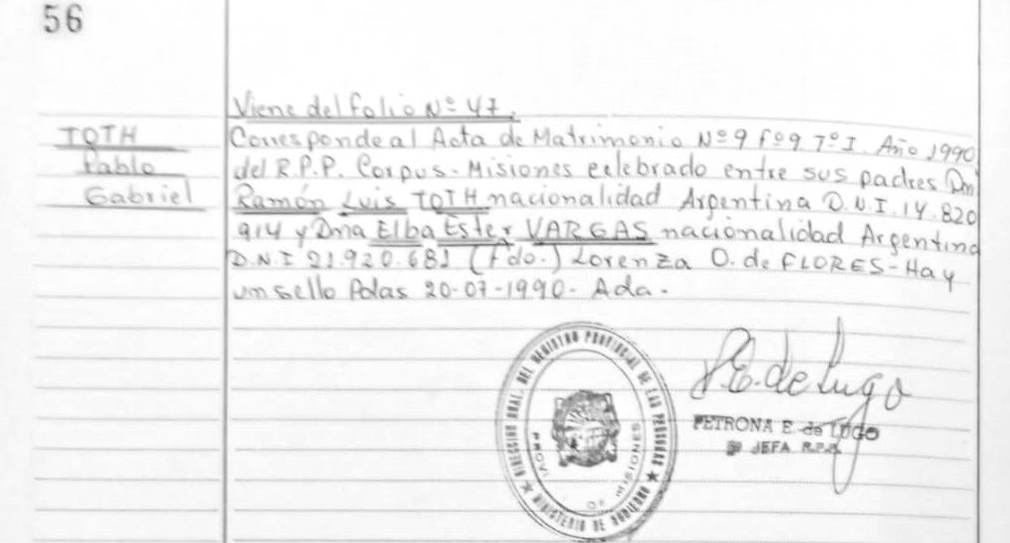 56
Viene del folio Nº 47.
TOTH
Pablo
Gabriel
Corresponde al Acta de Matrimonio Nº 9 Fº 9 Tº I. Año 1990
del R.P.P. Corpus - Misiones celebrado entre sus padres Dn
Ramón Luis TOTH nacionalidad Argentina D.N.I. 14.820
914 y Dña Elba Ester VARGAS nacionalidad Argentina
D.N.I 21.920.681 (Fdo.) Lorenza O. de FLORES - Hay
un sello Polas 20-07-1990 - Ada.
DIRECCION GRAL. DEL REGISTRO PROVINCIAL DE LAS PERSONAS
MINISTERIO DE GOBIERNO
PROV. DE MISIONES
P.E. de Lugo
PETRONA E de LUGO
JEFA R.P.P.